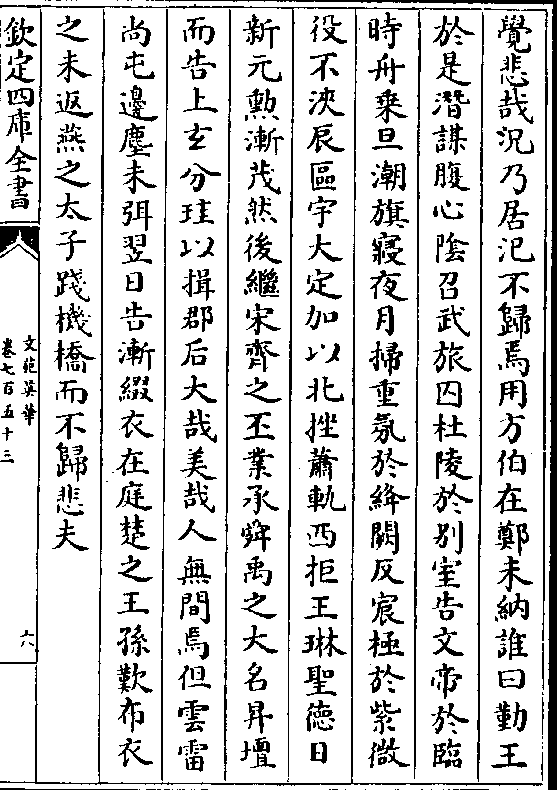 覺悲哉況乃居汜不歸焉用方伯在鄭未納誰曰勤王
於是潛謀腹心陰召武旅囚杜陵於别室告文帝於臨
時舟乗旦潮旗寢夜月掃重氛於絳闕反宸極於紫微
役不浹辰區宇大定加以北挫蕭軌西拒王琳聖德日
新元勲漸茂然後繼宋齊之丕業承舜禹之大名昇壇
而告上玄分珪以揖郡后大哉美哉人無間焉但雲雷
尚屯邊塵未弭翌日告漸綴衣在庭楚之王孫歎布衣
之未返燕之太子踐機橋而不歸悲夫
欽定四庫全書
文苑英華
卷七百五十三
六